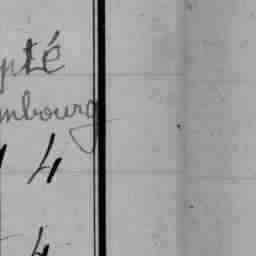 pté
mbourg
4
4